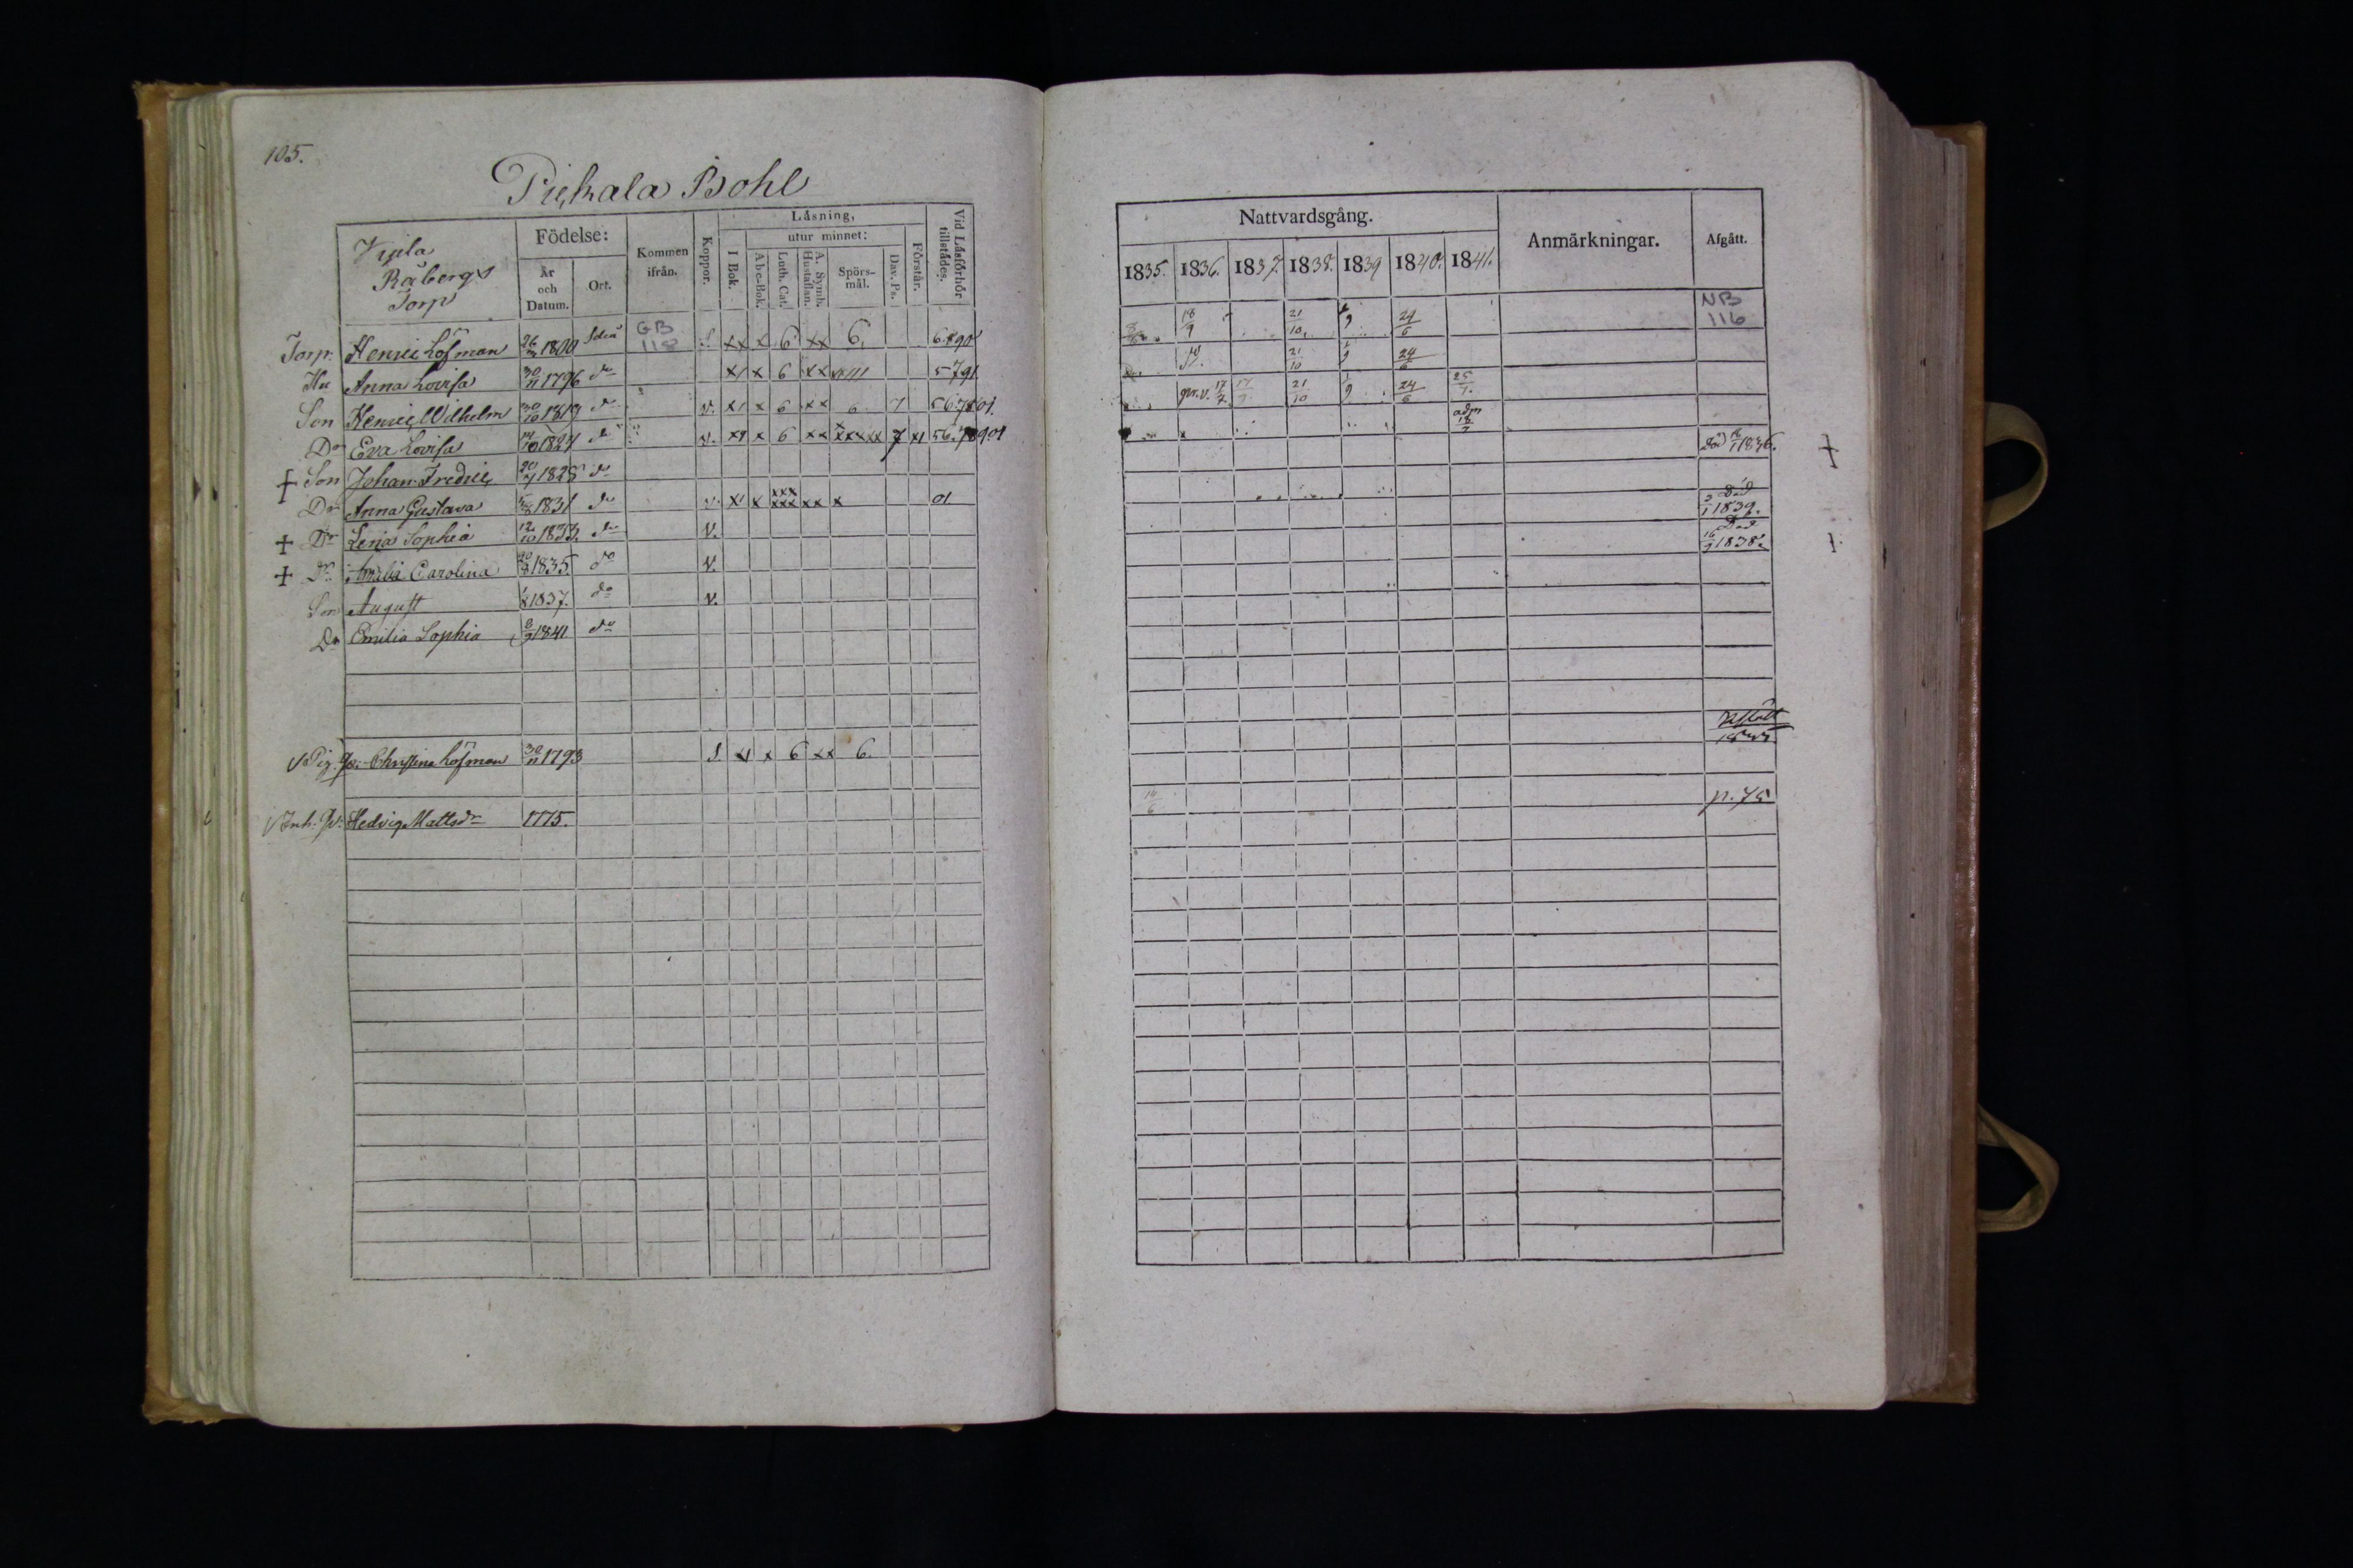 105.
Pickala Bohl
Kyrla Råbergs Torp
Födelse:
År och Datum.
Ort.
Kommen ifrån.
Koppor.
Läsning,
I Bok.
utur minnet:
Abc-Bok.
Luth. Cat.
A. Symb. Hustaflan.
Spörsmål.
Dav. Ps.
Förstår.
Vid Läsförhör tillstädes.
Torp. Henric Löfman 26 1800 GB 118 xx x 6 xx 6
Hu Anna Lovisa 30/11 1796 do x 6 xx 5791
Son Henric Wilhelm 30/10 1819 do v. x 6 xx 6 7
Dr Eva Lovisa 14/10 1824 do v. x 6 xx xxxxx 7
† Son Johan Fredric 20 1828 do
Dr Anna Gustava 1831 do v. x xxx xxx xx x 01
† Dr Lena Sophia 12/10 1833. do v.
† Dr Amalia Carolina 1835. do v.
Son August 1837. do v.
Dr Emilia Sophia 8/9 1841 do
Pig. Christina Löfman 30/11 1793 x 6 xx 6.
Inh. Hedvig Mattsdr 1775.
Nattvardsgång.
Anmärkningar.
Afgått.
1835. 1836. 1837. 1838. 1839 1840. 1841.
18/9 21/10 24/6 NB 116
21/10 24/6
17/7 17 21/10 24/6 25
adm 18
död 1836. †
Död 1839.
Död 16 1838.
14/6 p. 75